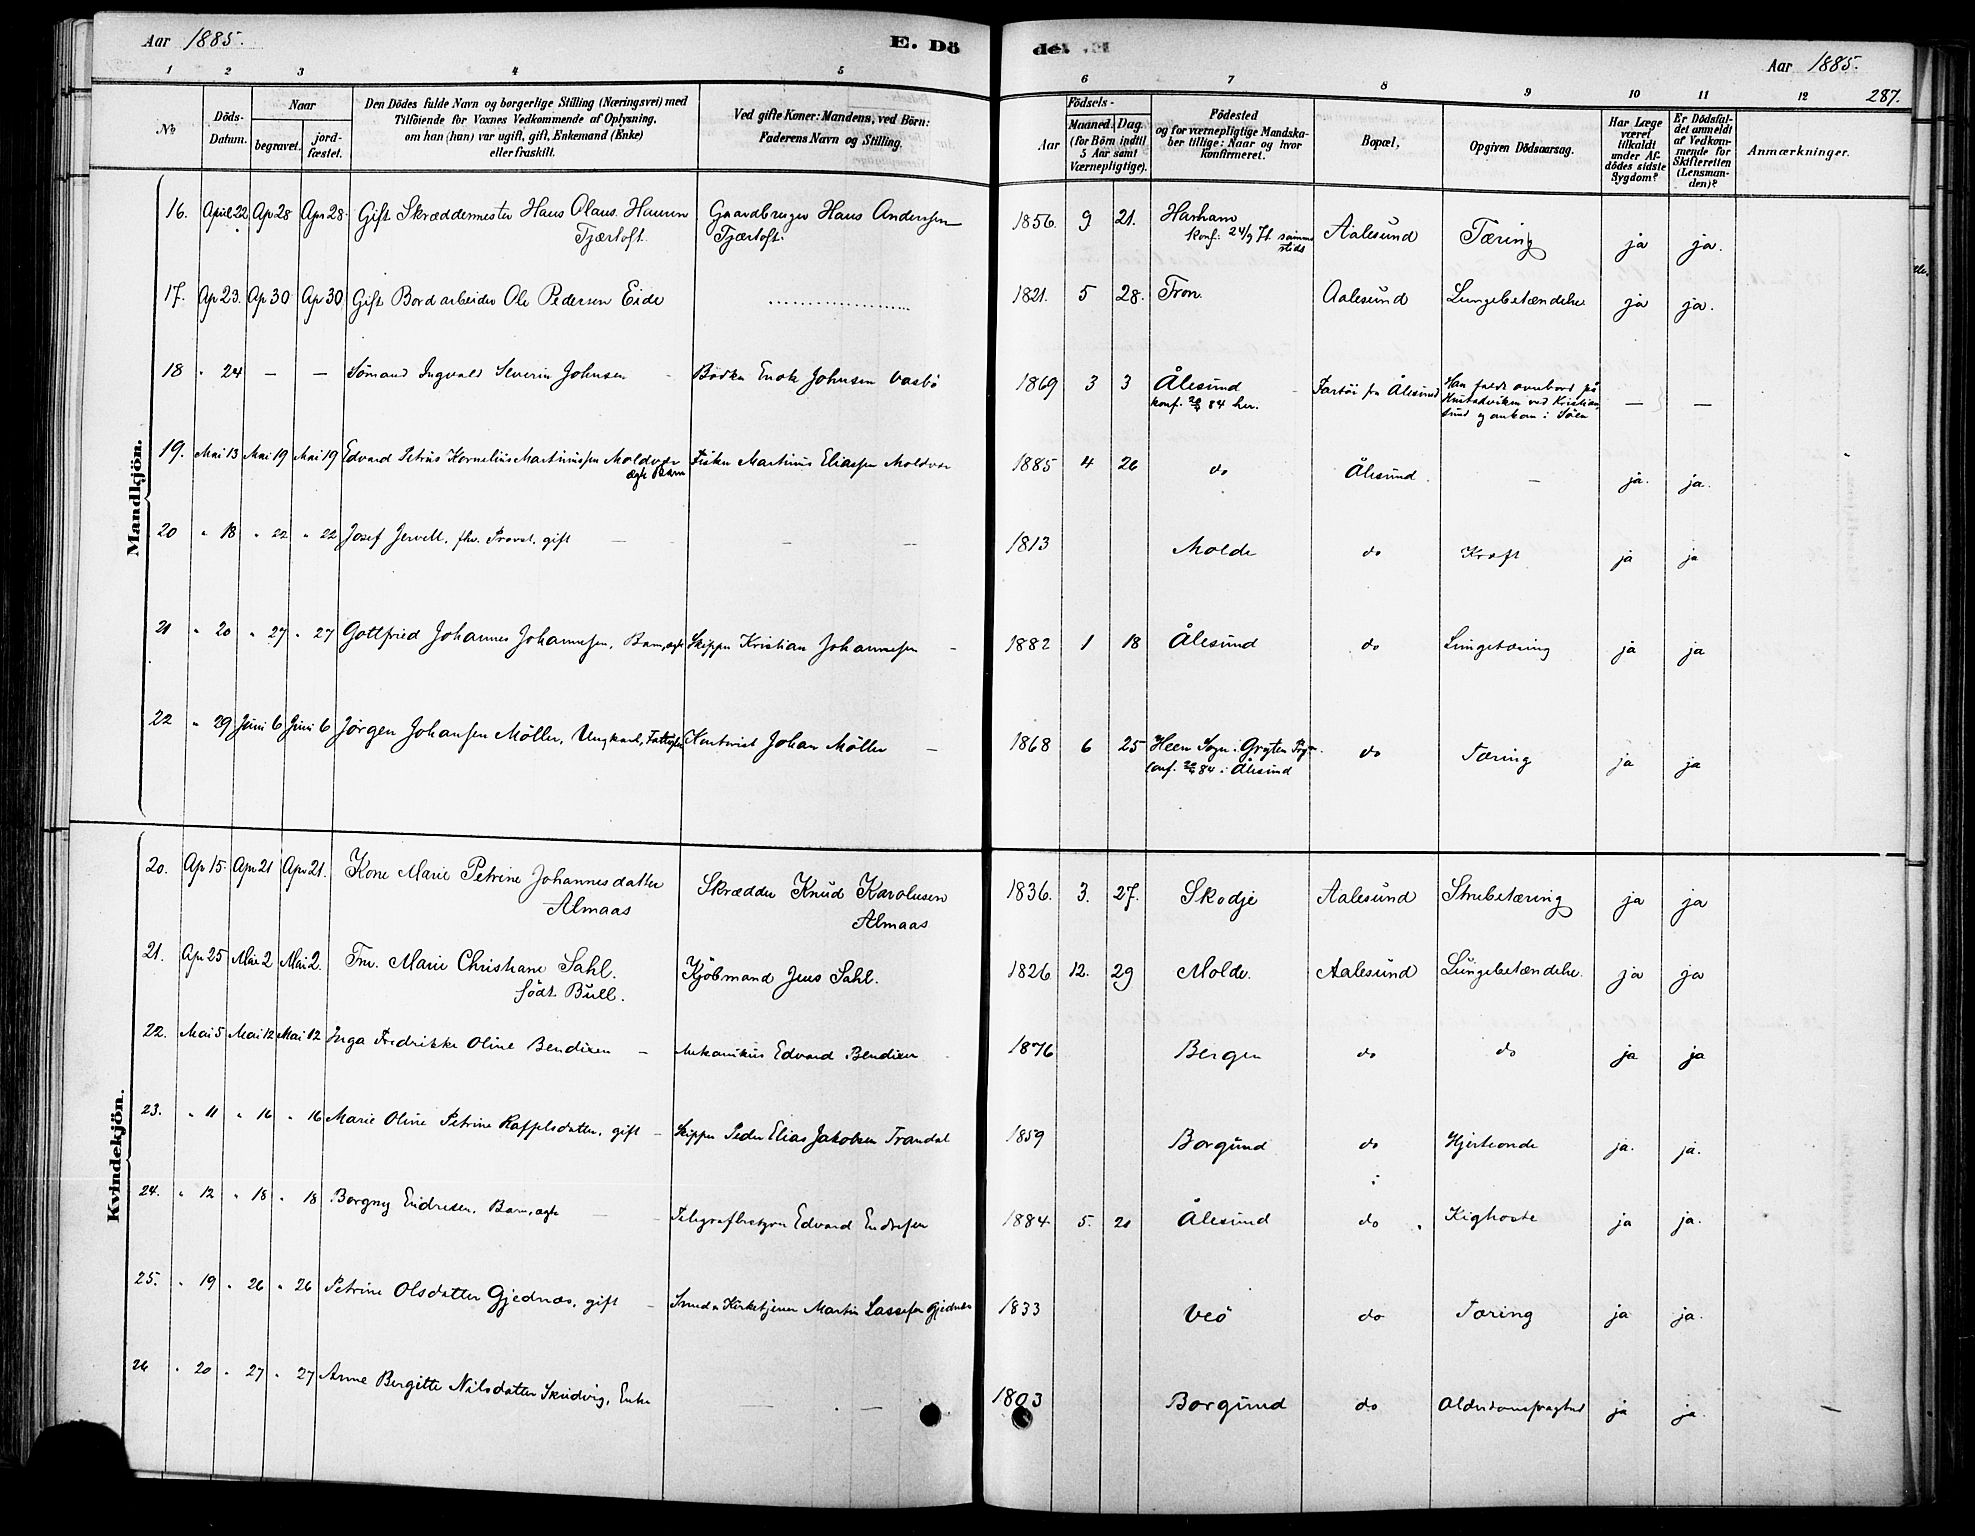 Aar 1885.
E. Dö
de.
Aar 1885.
287.
1 2 3 4 5 6 7 8 9 10 11 12
No
Döds-Datum.
Naar
begravet.
jordfæstet.
Den Dödes fulde Navn og borgerlige Stilling (Næringsvei) med
Tilföiende for Voxnes Vedkommende af Oplysning,
om han (hun) var ugift, gift, Enkemand (Enke)
eller fraskilt.
Ved gifte Koner: Mandens, ved Börn:
Faderens Navn og Stilling.
Födsels-
Aar
Maaned. Dag.
(for Börn indtil
5 Aar samt
Værnepligtige).
Födested
og for værnepligtige Mandskaber tillige: Naar og hvor
konfirmeret.
Bopæl,
Opgiven Dödsaarsag.
Har Læge
været
tilkaldt
under Afdödes sidste
Sygdom?
Er Dödsfaldet anmeldt
af Vedkommende for
Skifteretten
(Lensmanden)?
Anmærkninger.
Mandkjön.
16. April 22 Ap 28 Apr 28. Gift Skræddermester Hans Olaus Hansen Gaardbruger Hans Anderssen 1856 9 21. Harham Aalesund Tæring ja ja.
Fjærtoft Fjærtoft. konf: 24/9 71 sammesteds
17. Ap 23. Ap 30 Ap 30. Gift Bordarbeider Ole Pedersen Eide .................... 1821. 5 28. Tron. Aalesund Lungebetændelse ja ja.
18 " 24 — — Sömand Ingvald Severin Johnsen - Bödker Enok Johnsen Vasbö 1869 3 3 Ålesund - Fartöi fra Ålesund Han faldt overbord på — —
konf. 84 her. Hustadviken ved Kristiansund og omkom i Söen
19. Mai 13 Mai 19 Mai 19 Edvard Petrus Kornelius Martinussen Moldver Fisker Martinus Eliassen Moldvær 1885 4 26 do Ålesund. — ja. ja.
ægte Barn
20 " 18 " 22 " 22 Josef Jervell, fhv. Provst, gift — — — 1813 Molde do Kræft ja ja
21 " 20 " 27 " 27 Gottfried Johannes Johannesen, Barn, ægte Skipper Kristian Johannesen - 1882 1 18 Ålesund do Lungetæring ja ja
22 " 29 Juni 6 Juni 6 Jörgen Johansen Möller, Ungkarl, Johan Möller - 1868 6 25 Heen Sogn i Gryten Pgj. do Tæring ja ja
konf. 84 i Ålesund
Kvindekjön.
20. Ap 15. Apr 21 Apr 21. Kone Marie Petrine Johannesdatter Skrædder Knud Karolusen 1836. 3. 27. Skodje Aalesund Strubetæring ja ja
Almaas Almaas
21. Ap 25 Mai 2 Mai 2. Fru Marie Christiane Dahl. Kjöbmand Jens Dahl. 1826 12. 29 Molde. Aalesund Lungebetændelse. ja ja
födt Bull.
22. Mai 5 Mai 12 Mai 12 Inga Fredrikke Oline Bendixen — Mekanikus Edvard Bendixen 1876 Bergen do do ja ja
23. " 11 " 16 " 16 Marie Oline Petrine Raffelsdatter, gift - Skipper Peder Elias Jakobsen Trandal 1859 Borgund do Hjerteonde ja. ja.
24. " 12 " 18 " 18 Borgny Endresen, Barn, ægte — Telegrafbestyrer Edvard Endresen 1884. 5. 20 Ålesund do Kighoste ja ja.
25. " 19 " 26 " 26 Petrine Olsdatter Gjednæs, gift - Smed & Kirketjener Martin Lassesen Gjednæs 1833 Veö do Tæring ja ja.
26 " 20 " 27 " 27 Anne Bergitte Nilsdatter Skudvig, Enke — — 1803 Borgund do Alderdomssvaghed ja ja. —